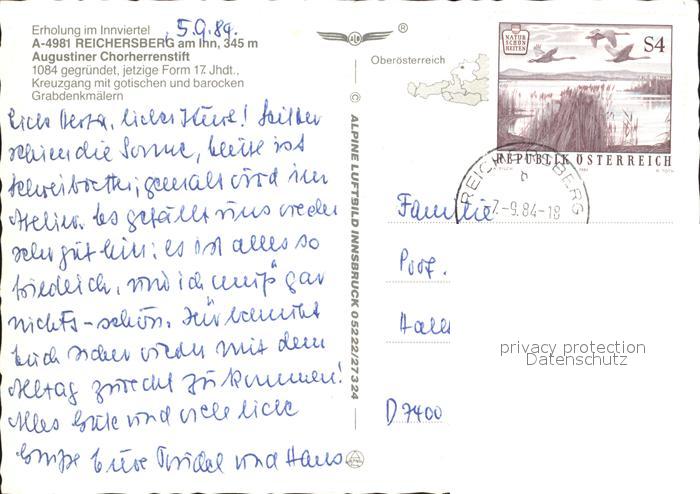 Erholung im Innviertel
5.9.84.
A-4981 REICHERSBERG am Inn, 345 m
Augustiner Chorherrenstift
1084 gegründet, jetzige Form 17. Jhdt.,
Kreuzgang mit gotischen und barocken
Grabdenkmälern
®
Oberösterreich
NATUR
SCHÖN
HEITEN
S4
REPUBLIK ÖSTERREICH
REICHERSBERG
b
7.-9.84-18
© ALPINE LUFTBILD INNSBRUCK 05222/27324
Liebe Herta, lieber! Seither
schien die Sonne, heute ist
gemalt wird im
Atelier. Es gefällt uns wieder
sehr gut hier: es ist alles so
friedlich, und ich muß gar
nichts - schön. Ihr
Euch sicher wieder mit dem
Alltag zurecht zu kommen!
Alles Gute und viele liebe
Grüße Eure und Hans
Familie
Prof.
Hall
D 7400
privacy protection
Datenschutz